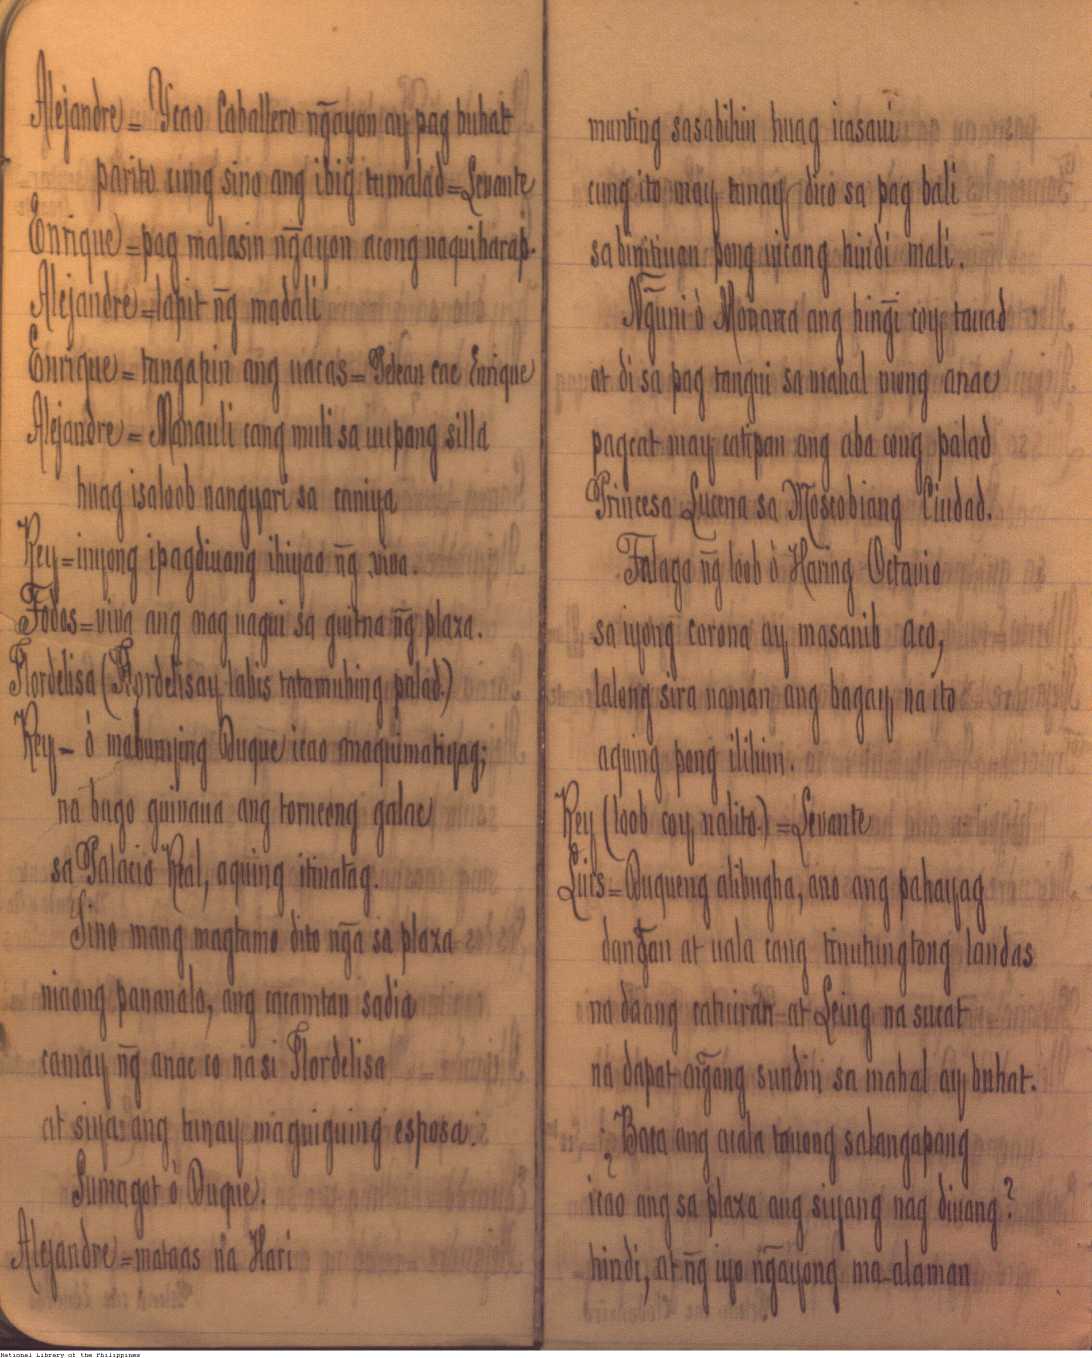 Alejandre = Ycao Caballero ñg̃ayon ay pag buhat
parito cung sino ang ibig tumalad = Levante
Enrique = pag malasin ñg̃ayon acong naquiharap.
Alejandre = lapit ñg̃ madali
Enrique = tangapin ang uacas = Pelean cae Enrique
Alejandre = Manauli cang muli sa uupang silla
huag isaloob nangyari sa caniya
Rey = inyong ipagdiuang ihiyao ñg̃ viva.
Todos = viva ang mag uagui sa guitna ñg̃ plaza.
Flordelisa (Flordelisay labis tatamuhing palad.)
Rey - ó mabunying Duque icao maquimatiyag;
na bago guinaua ang torneong galac
sa Palacio Real, aquing itinatag.
Sino mang magtamo dito ñg̃a sa plaza
niaong pananalo, ang cacamtan sadia
camay ñg̃ anac co na si Flordelisa
at siya ang tunay maguiguing esposa.
Sumagot ó Duque.
Alejandre = mataas na Hari
munting sasabihin huag icasaui
cung ito may tunay dico sa pag bali
sa binitiuan pong uicang hindi mali.
Ñg̃uni ó Monarca ang hiñg̃i coy tauad
at di sa pag tangui sa mahal niong anac
pagcat may catipan ang aba cong palad
Princesa Lucena sa Moscobiang Ciudad.
Talaga ñg̃ loob ó Haring Octavio
sa iyong corona ay masanib aco,
lalong sira naman ang bagay na ito
aquing pong ilihim.
Rey (loob coy nalito.) = Levante
Luis = Duqueng alibugha, ano ang pahayag
dañg̃an at uala cang tinutungtong landas
na daang catuiran at Leing na sucat
na dapat ang̃ang sundin sa mahal ay buhat.
¿Baca ang acala tauong salangapang
icao ang sa plaza ang siyang nag diuang?
hindi, at ñg̃ iyo ñg̃ayong ma-alaman
National Library of the Philippines